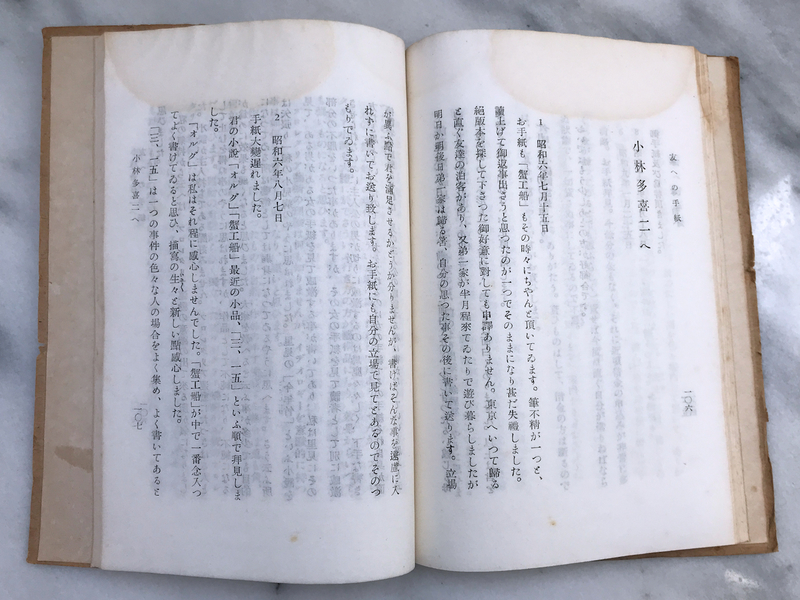 友への手紙
一〇六
小林多喜二へ
1 昭和六年七月十五日
お手紙も「蟹工船」もその時々にちやんと頂いてゐます。筆不精が一つと、
讀上げて御返事出さうと思つたのが一つでそのままになり甚だ失禮しました。
絕版本を探して下さつた御好意に對しても申譯ありません。東京へいつて歸る
と直ぐ友達の泊客があり、又弟一家が半月程來てゐたりで遊び暮らしましたが
明日か明後日弟一家は歸る筈、自分の思つた事その後に書いて送ります。立場
が異ふ點で君を滿足させるかどうか分りませんが、書けばそんな事を遠慮に入
れずに書いてお送り致します。お手紙にも自分の立場で見てとあるのでそのつ
もりでゐます。
2 昭和六年八月七日
手紙大變遲れました。
君の小說「オルグ」「蟹工船」最近の小品、「三、一五」といふ順で拜見しま
した。
「オルグ」は私はそれ程に感心しませんでした。「蟹工船」が中で一番念入つ
てよく書けてゐると思ひ、描寫の生々と新しい點感心しました。
「三、一五」は一つの事件の色々な人の場合をよく集め、よく書いてあると
小林多喜二へ
一〇七